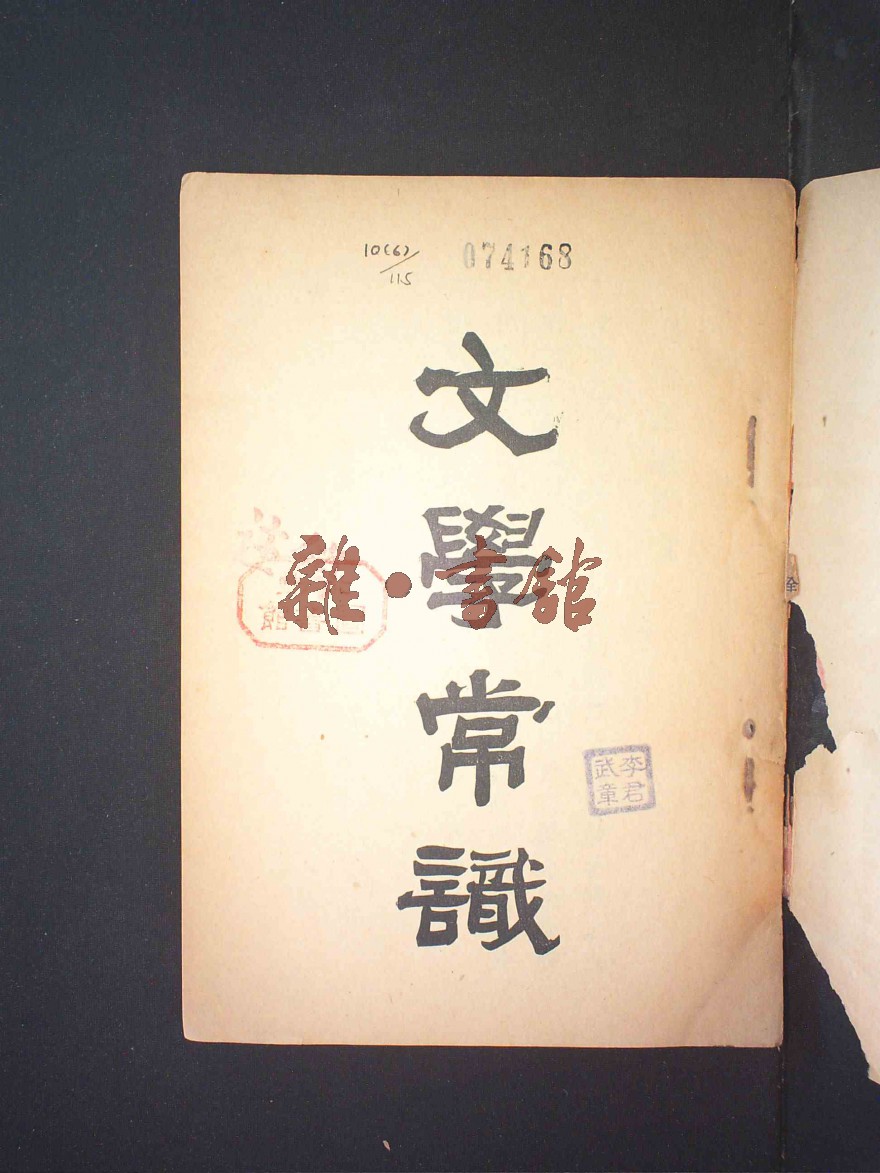 10(6)/115
074168
文學常識
雜·書館
館
李君
武章
全